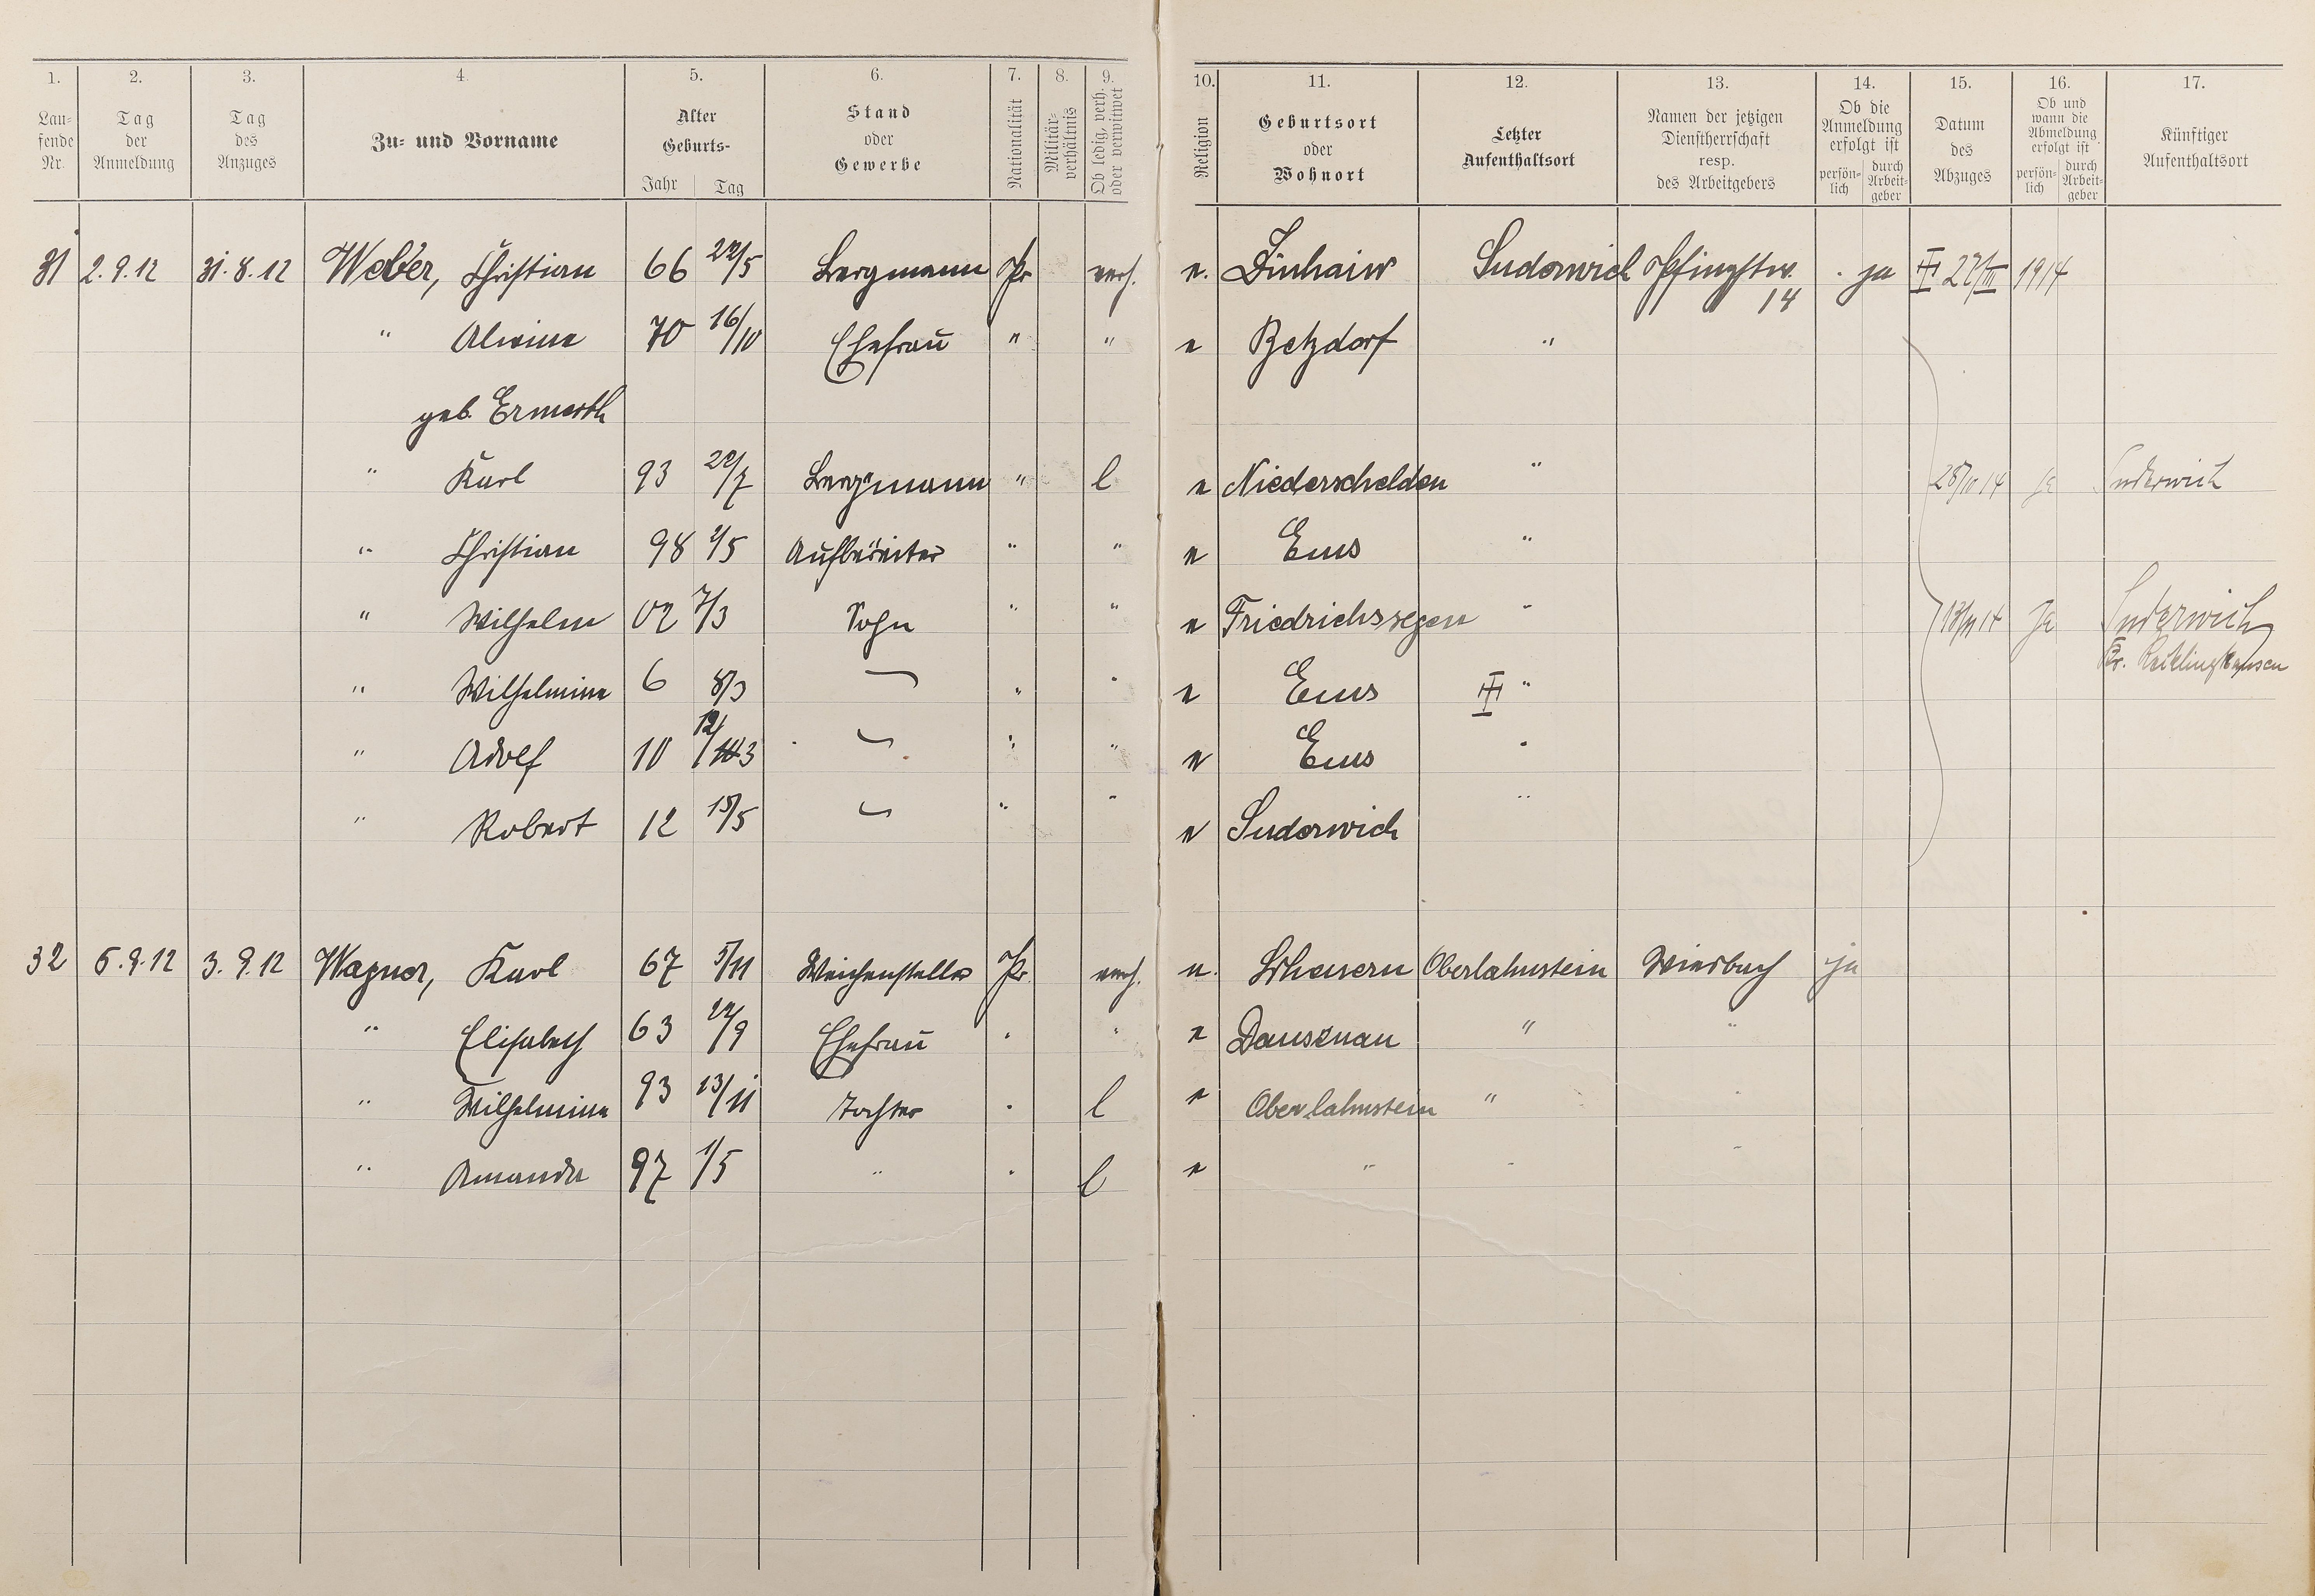 1. 2. 3. 4. 5. 6. 7. 8. 9. 10. 11. 12. 13. 14. 15. 16. 17.
Lau-
fende
Nr.
Tag
der
Anmeldung
Tag
des
Anzuges
Zu- und Vorname
Alter
Geburts-
Jahr Tag
Stand
oder
Gewerbe
Nationalität
Militär-
verhältnis
Ob ledig, verh.
oder verwitwet
Religion
Geburtsort
oder
Wohnort
Letzter
Aufenthaltsort
Namen der jetzigen
Dienstherrschaft
resp.
des Arbeitgebers
Ob die
Anmeldung
erfolgt ist
persön-
lich
durch
Arbeit-
geber
Datum
des
Abzuges
Ob und
wann die
Abmeldung
erfolgt ist
persön-
lich
durch
Arbeit-
geber
Künftiger
Aufenthaltsort
31 2.9.12 31.8.12 Weber, Christian 66 22/5 Bergmann Pr verh. e. Suderwich Pfingstw. ja III 27/III 1914
14
" Alwine 70 16/10 Ehefrau " " e Betzdorf "
geb. Ermerth
" Karl 93 20/7 Bergmann " l e Niederschelden " 14 ja Suderwich
" Christian 98 1/5 Aufbereiter " " e Ems "
" Wilhelm 02 7/3 Sohn " " e Friedrichssegen " 14 Ja Suderwich
Kr. Recklinghausen
" Wilhelmine 6 8/3 " " e Ems III "
" Adolf 10 12/3 " " e Ems "
" Robert 12 15/5 " " e Suderwich "
32 5.9.12 3.9.12 Wagner, Karl 67 5/11 Weichensteller Pr verh. e. Oberlahnstein ja
" Elisabeth 63 22/9 Ehefrau " " e Dausenau " "
" Wilhelmine 93 13/11 Tochter " l e Oberlahnstein " "
" Amanda 97 1/5 " " l e " " "